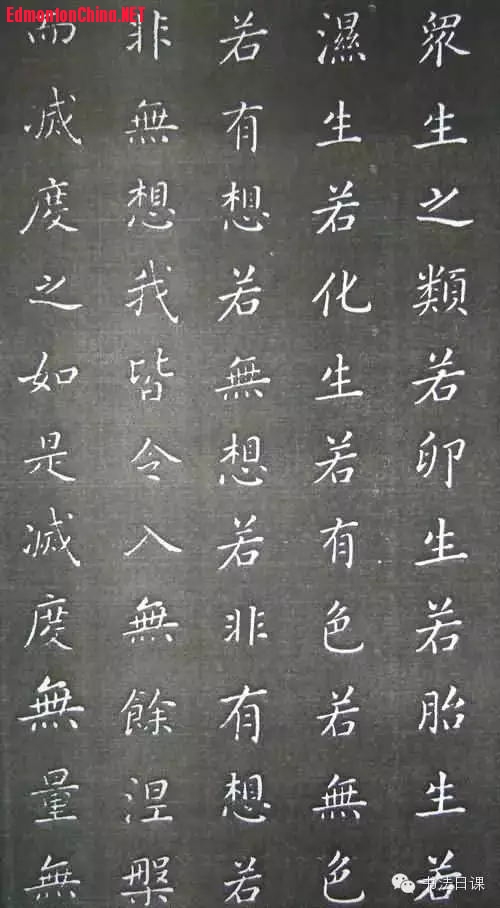 EdmontonChina.NET
眾生之類若卵生若胎生若
濕生若化生若有色若無色
若有想若無想若非有想若
非無想我皆令入無餘涅槃
而滅度之如是滅度無量無
书法日课